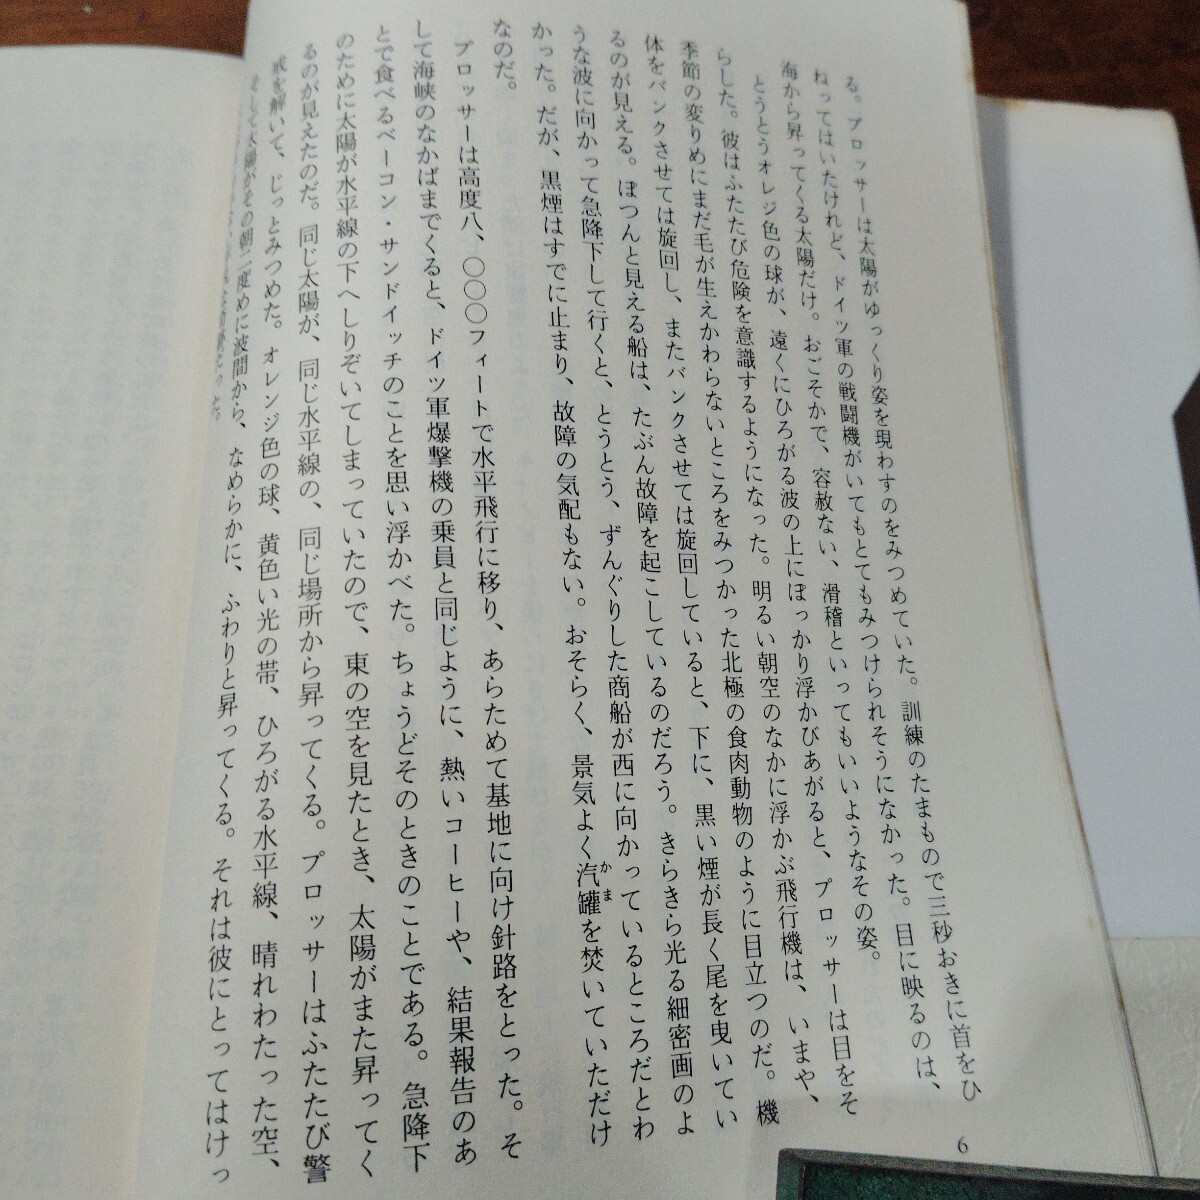 る。プロッサーは太陽がゆっくり姿を現わすのをみつめていた。訓練のたまもので三秒おきに首をひ
ねってはいたけれど、ドイツ軍の戦闘機がいてもとてもみつけられそうになかった。目に映るのは、
海から昇ってくる太陽だけ。おごそかで、容赦ない、滑稽といってもいいようなその姿。
とうとうオレンジ色の球が、遠くにひろがる波の上にぽっかり浮かびあがると、プロッサーは目をそ
らした。彼はふたたび危険を意識するようになった。明るい朝空のなかに浮かぶ飛行機は、いまや、
季節の変りめにまだ毛が生えかわらないところをみつかった北極の食肉動物のように目立つのだ。機
体をバンクさせては旋回し、またバンクさせては旋回していると、下に、黒い煙が長く尾を曳いてい
るのが見える。ぽつんと見える船は、たぶん故障を起こしているのだろう。きらきら光る細密画のよ
うな波に向かって急降下して行くと、とうとう、ずんぐりした商船が西に向かっているところだとわ
かった。だが、黒煙はすでに止まり、故障の気配もない。おそらく、景気よく汽罐を焚いていただけ
かま
なのだ。
プロッサーは高度八、〇〇〇フィートで水平飛行に移り、あらためて基地に向け針路をとった。そ
して海峡のなかばまでくると、ドイツ軍爆撃機の乗員と同じように、熱いコーヒーや、結果報告のあ
とで食べるベーコン・サンドイッチのことを思い浮かべた。ちょうどそのときのことである。急降下
のために太陽が水平線の下へしりぞいてしまっていたので、東の空を見たとき、太陽がまた昇ってく
るのが見えたのだ。同じ太陽が、同じ水平線の、同じ場所から昇ってくる。プロッサーはふたたび警
戒を解いて、じっとみつめた。オレンジ色の球、黄色い光の帯、ひろがる水平線、晴れわたった空、
そして太陽がその朝二度めに波間から、なめらかに、ふわりと昇ってくる。それは彼にとってはけっ
6